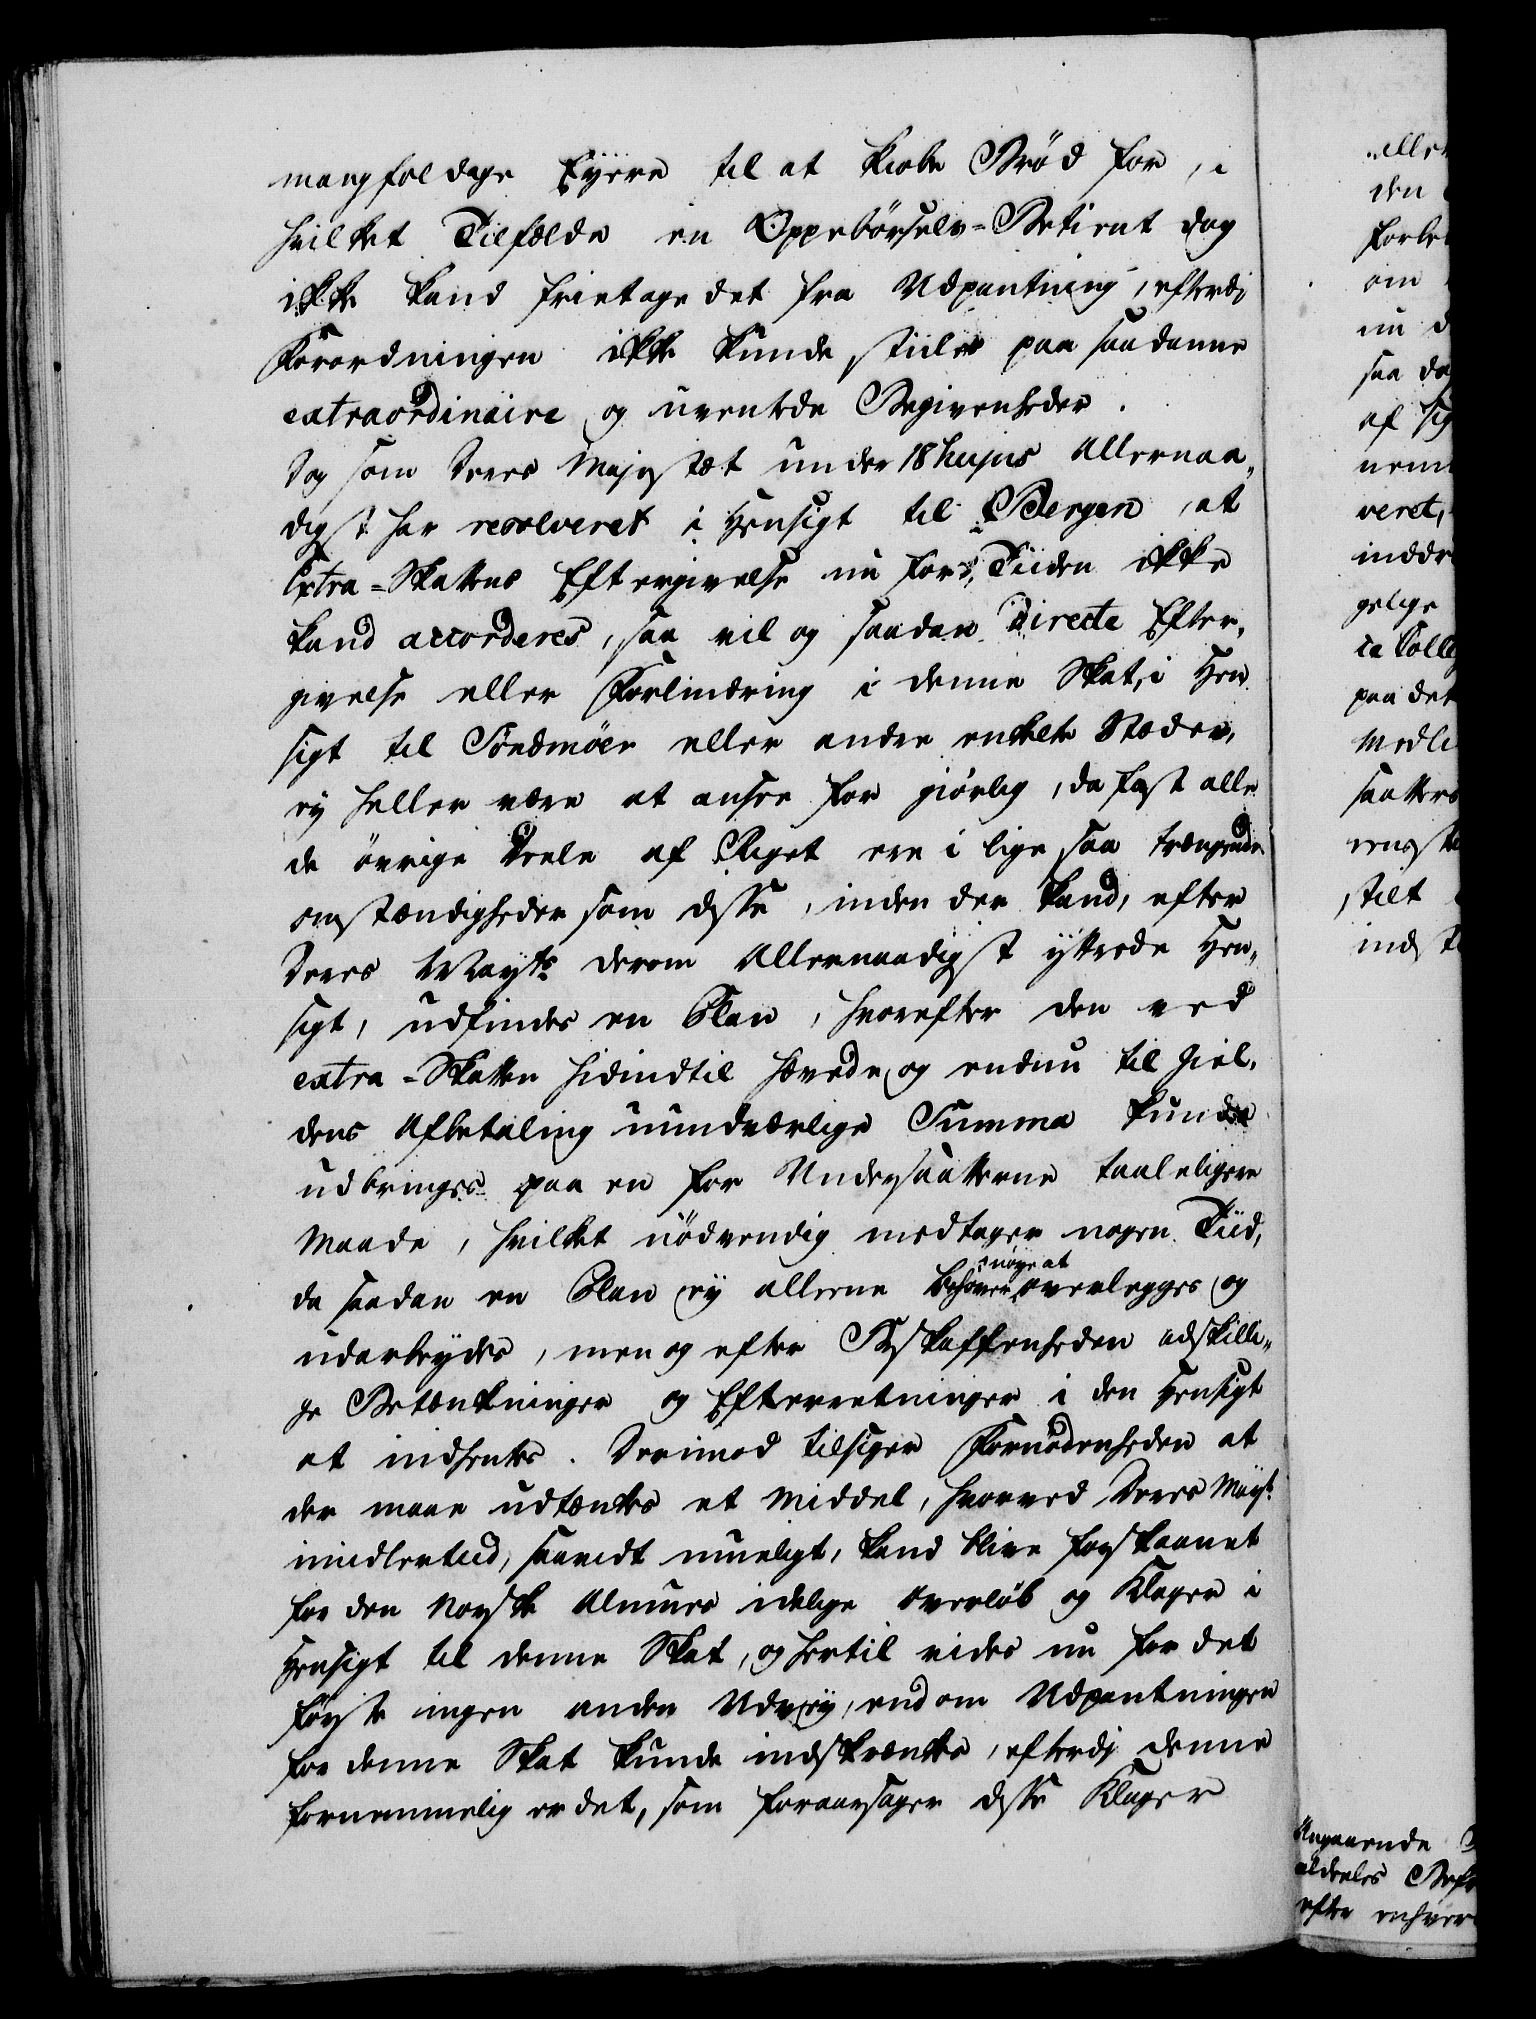 mangfoldige Eyere til at kiøbe Brød for, i
hvilket Tilfælde en Oppebörsels-Betient dog
ikke kand fritage det fra Udpantning, efterdj
Forordningen ikke kunde stiiles paa saadanne
extraordinaire og uventede Begivenheder.
Dog som Deres Majestæt under 18 hujus Allernaa„
digst har resolveret i Hensigt til Bergen, at
Extra-Skattens Eftergivelse nu for Tiiden ikke
kand accorderes, saa vil og saadan Directe Efter„
givelse eller Forlindring i denne Skat, i Hen„
sigt til Söndmöer eller andre enkelte Stæder,
ey heller være at ansee for giörlig, da fast alle
de övrige Deele af Riget ere i lige saa trængende
omstændigheder som disse, inden der kand, efter
Deres Mayts derom Allernaadigst yttrede Hen„
sigt, udfindes en Plan, hvorefter den ved
extra-Skatten hidindtil hævede og endnu til Giel„
dens Afbetaling uundværlige Summa kunde
udbringes paa en for Undersaatterne taaleligere
Maade, hvilket nödvendig medtager nogen Tiid,
da saadan en Plan ey alleene behöver nöye at overlegges og
udarbeydes, men og efter Beskaffenheden adskilli„
ge Betænkninger og Efterretninger i den Hensigt
at indhentes. Derimod tilsiger Fornödenheden at
der maae udtænkes et Middel, hvorved Deres Mayt
imidlertiid, saavidt mueligt, kand blive forskaanet
for den Norske Almues idelige Overløb og Klager i
Hensigt til denne Skat, og hertil vides nu for det
förste ingen anden Udvey, end om Udpantningen
for denne Skat kunde indskrænkes, efterdj denne
fornemmelig er det, som foraarsager disse Klager
eller
den
om
nu
saa
af
veret,
gelige
paa det
stilt
Angaaende
aldeeles
efter enhver